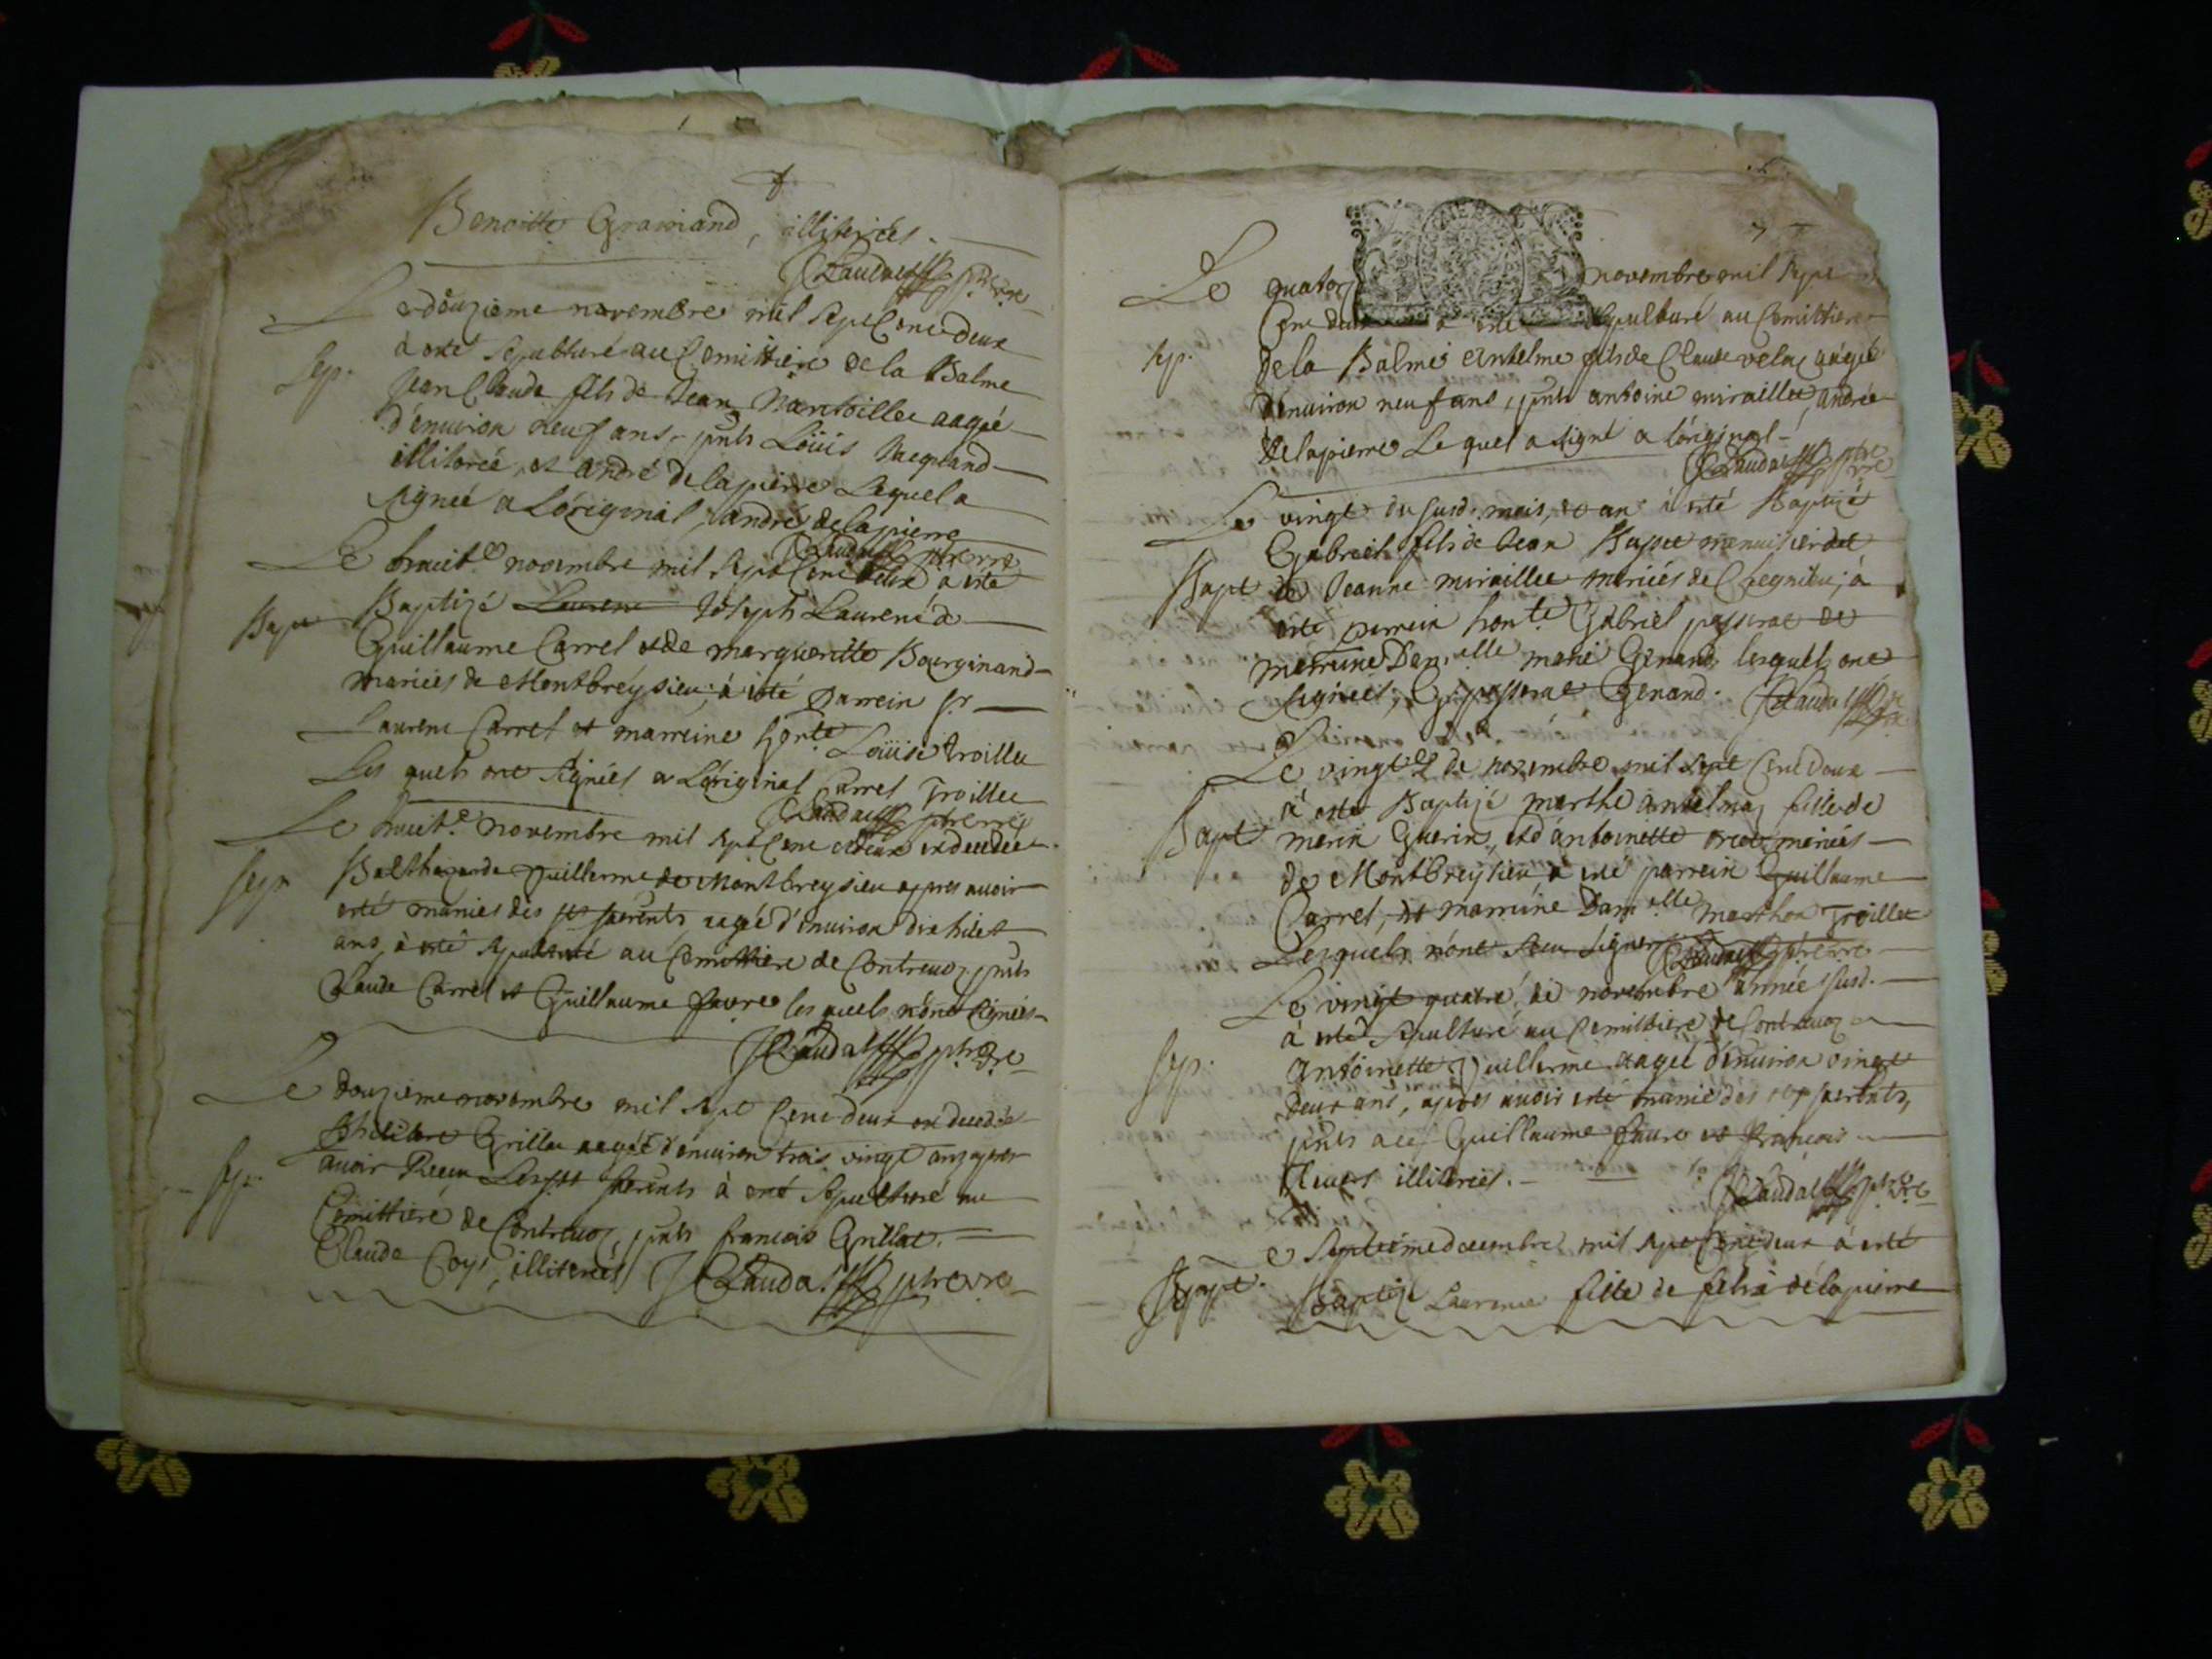 Benoitte Graviand, illiterées.
Claudas ptre vre
Le douzieme novembre mil Sept Cent deux
à esté Sepulturé au Cemittiere de la Balme
Sep.
Jean Claude fils de Jean Nantoillet aagée
d'environ neuf ans, pnts Loüis
illiterée, et andré delapierre Lequel a
Signée a Lóriginal, andré delapierre
Claudas ptre vre
Le huict.e novembre mil Sept Cent deux à esté
Bapt
Baptizé Joseph Laurent à
Guillaume Carrel et de margueritte Bourginand
mariées de Montbréysieu; à esté parrein Sr
Laurent Carrel et marreine honte. Loüise troillet
Les quels ont Signées a Lóriginal Carrel Troillet
Claudas ptre vre
Le huict.e novembre mil Sept Cent deux est decedée
Sep.
Balthazarde Guillerme de Montbreysieu appres avoir
esté munies des sts sacrents, aagée d'environ dix huict
ans, à esté Sepulturé au Cemittiere de Contrevoz, pnts
Claude Carrel et Guillaume favre les quels n'ont Signées
Claudas ptre vre
Le douzieme novembre mil Sept Cent deux est decedé
Philibert Grillet aagée d'environ trois vingt ans apres
Sep.
avoir Receu Les sts sacrents à esté Sepulturé au
Cemittiere de Contrevoz, pnts francois Grillat.
Claude Coyz, illiterées Claudas ptre vre
Le quator novembre mil Sept
Cent deux a esté Sepulturé au Cemittiere
Sep.
de la Balme Antelme fils de Claude velaz aagée
d'environ neuf ans, pnts antoine miraillet, andrée
delapierre Lequel a Signé a lóriginal
Claudas ptre vre
Le vingt du susd. mois, et an à esté Baptizé
Gabriel fils de Jean menuisier et
Bapt
de Jeanne miraillet mariées de Chegnieu; à
esté parrein hon.te Gabriel passerat et
marreine Dam.elle marie Genand, lesquels ont
Signées, G. passerat Genand. Claudas
Le vingt de novembre mil Sept Cent Deux
à esté Baptizé marthe antelmaz fille de
Bapt
merin Guerin, et d'antoinette mariées
de Montbreysieu à esté parrein Guillaume
Carrel, et marreine Dam.elle marthon Troillet
Lesquels n'ont sceu signer Claudas ptre vre
Le vingt quatre de novembre année susd.
à esté Sepulturé au Cemittiere de Contrevoz
Sep.
antoinette Guillerme aagée d'environ vingt
deux ans, apres avoir esté munie des sts sacrents,
pnts a ce Guillaume favre et francois
illiterées.
Claudas ptre vre
Le Septieme decembre mil Sept Cent deux à esté
Bapt.
Baptizé Laurence fille de felix delapierre